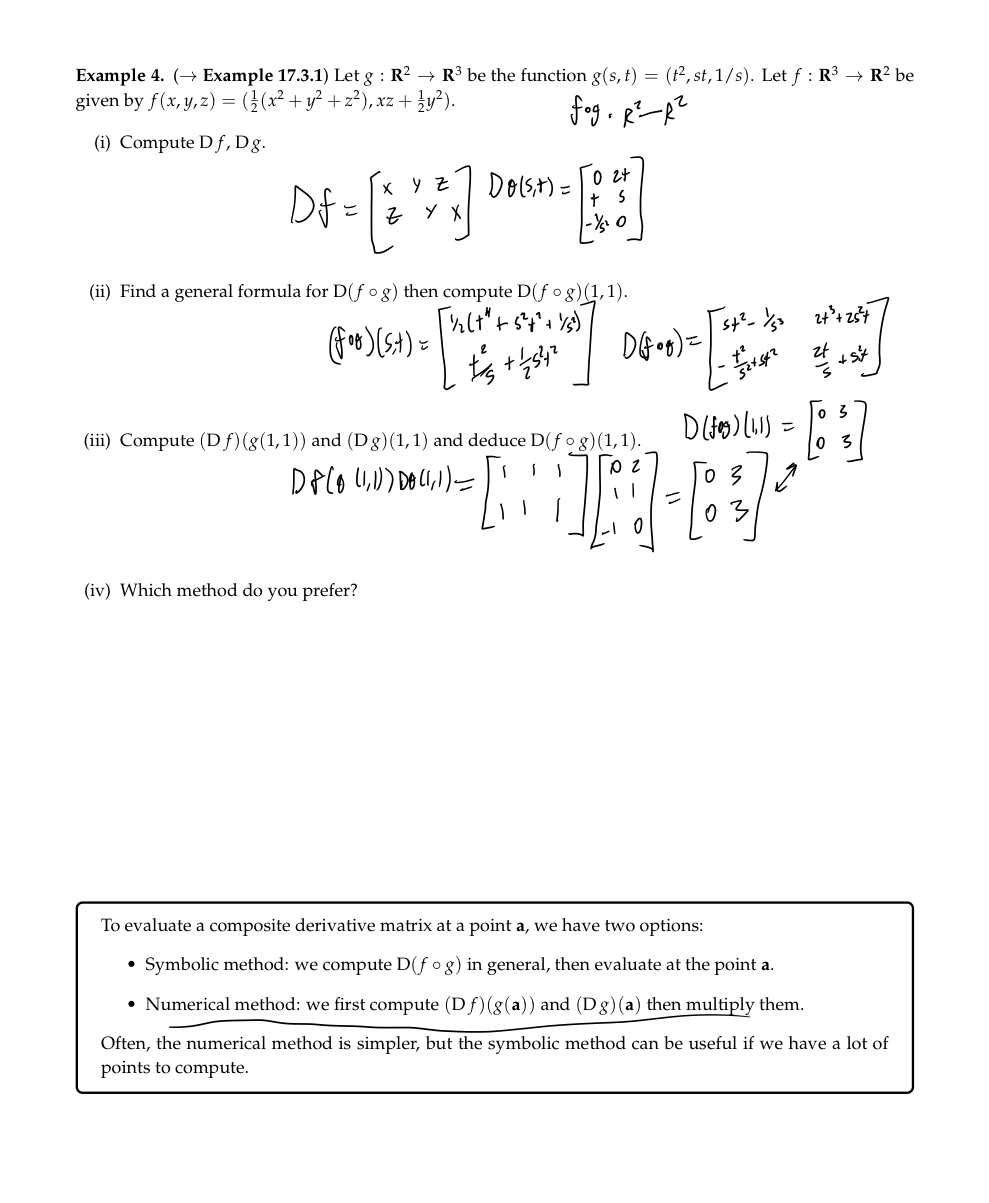 Example 4. (→ Example 17.3.1) Let g : R² → R³ be the function g(s, t) = (t², st, 1/s). Let f : R³ → R² be
given by f(x, y, z) = (½(x² + y² + z²), xz + ½y²).
f∘g . R² — R²
(i) Compute D f, D g.
Df = [x y z; z y x] Dg(s,t) = [0 2t; t s; -1/s² 0]
(ii) Find a general formula for D(f ∘ g) then compute D(f ∘ g)(1, 1).
(f∘g)(s,t) = [1/2(t⁴ + s²t² + 1/s²); t²/s + 1/2 s²t²] D(f∘g) = [st² - 1/s³ 2t³ + 2s²t; -t²/s² + st² 2t/s + s²t]
D(f∘g)(1,1) = [0 3; 0 3]
(iii) Compute (D f)(g(1, 1)) and (D g)(1, 1) and deduce D(f ∘ g)(1, 1).
Df(g(1,1)) Dg(1,1) = [1 1 1; 1 1 1] [0 2; 1 1; -1 0] = [0 3; 0 3] ↔
(iv) Which method do you prefer?
To evaluate a composite derivative matrix at a point a, we have two options:
• Symbolic method: we compute D(f ∘ g) in general, then evaluate at the point a.
• Numerical method: we first compute (D f)(g(a)) and (D g)(a) then multiply them.
Often, the numerical method is simpler, but the symbolic method can be useful if we have a lot of
points to compute.